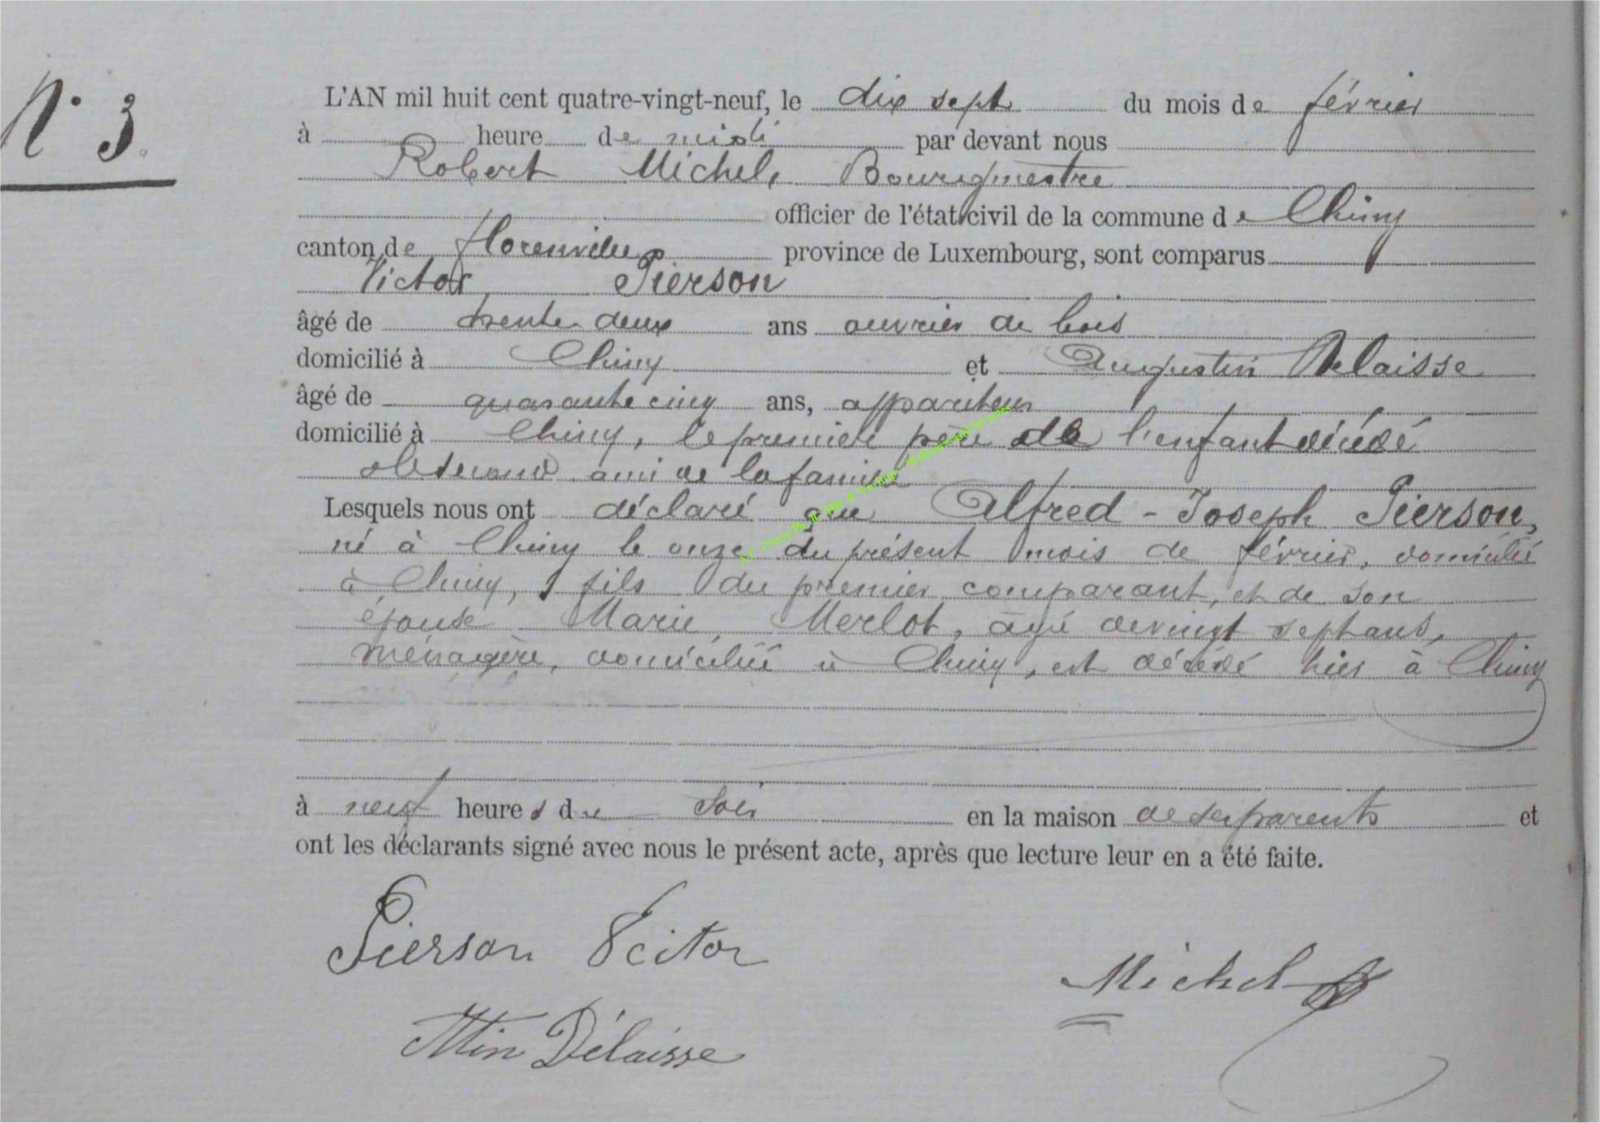 N° 3
L'AN mil huit cent quatre-vingt-neuf, le dix sept du mois de février
à heure de midi par devant nous
Robert Michel, Bourgmestre
officier de l'état civil de la commune de Chiny
canton de Florenville province de Luxembourg, sont comparus
Victor Pierson
âgé de trente deux ans ouvrier de bois
domicilié à Chiny et Augustin Delaisse
âgé de quarante cinq ans, appariteur
domicilié à Chiny, le premier père de l'enfant décédé
et le second ami de la famille
Lesquels nous ont déclaré que Alfred - Joseph Pierson,
né à Chiny le onze du présent mois de février, domicilié
à Chiny, fils du premier comparant, et de son
épouse Marie Merlot, âgé de vingt sept ans,
ménagère, domiciliée à Chiny, est décédé hier à Chiny
à neuf heures du soir en la maison de ses parents et
ont les déclarants signé avec nous le présent acte, après que lecture leur en a été faite.
Pierson Vcitor
Michel
Delaisse